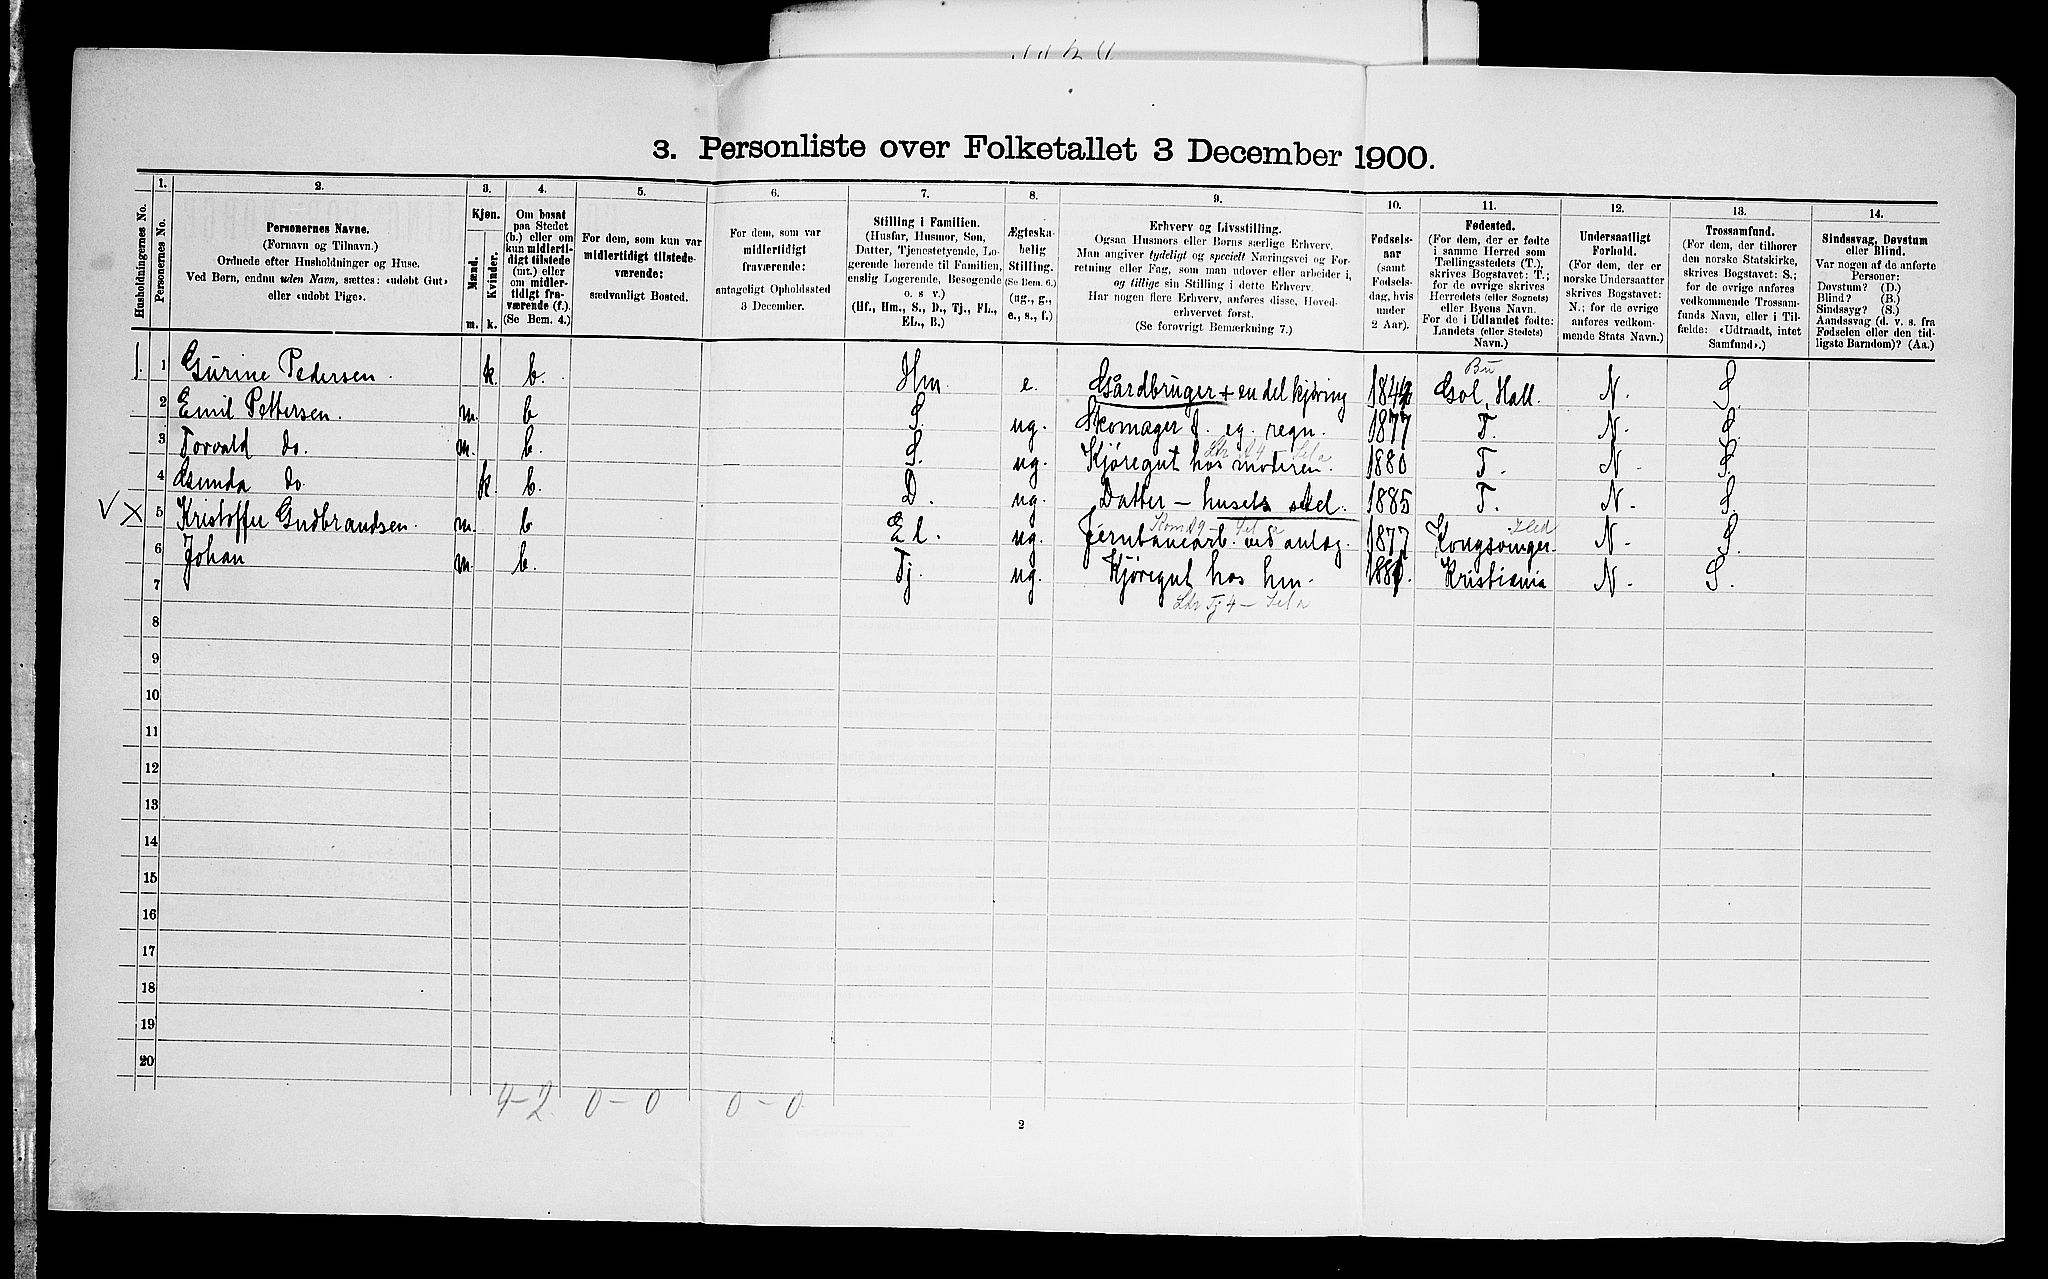 3. Personliste over Folketallet 3 December 1900.
Husholdningernes No.
1.
Personernes No.
2.
Personernes Navne.
(Fornavn og Tilnavn.)
Ordnede efter Husholdninger og Huse.
Ved Børn, endnu uden Navn, sættes: «udøbt Gut»
eller «udøbt Pige».
3.
Kjøn.
Mænd.
Kvinder.
m. k.
4.
Om bosat
paa Stedet
(b.) eller om
kun midlerti-
digt tilstede
(mt.) eller
om midler-
tidigt fra-
værende (f.).
(Se Bem. 4.)
5.
For dem, som kun var
midlertidigt tilstede-
værende:
sædvanligt Bosted.
6.
For dem, som var
midlertidigt
fraværende:
antageligt Opholdssted
3 December.
7.
Stilling i Familien.
(Husfar, Husmor, Søn,
Datter, Tjenestetyende, Lo-
gerende hørende til Familien,
enslig Logerende, Besøgende
o. s v.)
(Hf., Hm., S., D., Tj., FL.,
EL., B.)
8.
Ægteska-
belig
Stilling.
(Se Bem. 6.)
(ug., g.,
e., s., f.)
9.
Erhverv og Livsstilling.
Ogsaa Husmors eller Børns særlige Erhverv.
Man angiver tydeligt og specielt Næringsvei og For-
retning eller Fag, som man udøver eller arbeider i,
og tillige sin Stilling i dette Erhverv.
Har nogen flere Erhverv, anføres disse, Hoved-
erhvervet først.
(Se forøvrigt Bemærkning 7.)
10.
Fødsels-
aar
(samt
Fødsels-
dag, hvis
under
2 Aar).
11.
Fødested.
(For dem, der er fødte
i samme Herred som
Tællingsstedets (T.),
skrives Bogstavet: T.;
for de øvrige skrives
Herredets (eller Sognets)
eller Byens Navn.
For de i Udlandet fødte:
Landets (eller Stedets)
Navn.)
12.
Undersaatligt
Forhold.
(For dem, der er
norske Undersaatter
skrives Bogstavet:
N.; for de øvrige
anføres vedkom-
mende Stats Navn.)
13.
Trossamfund.
(For dem, der tilhører
den norske Statskirke,
skrives Bogstavet: S.;
for de øvrige anføres
vedkommende Trossam-
funds Navn, eller i Til-
fælde: «Udtraadt, intet
Samfund».)
14.
Sindssvag, Døvstum
eller Blind.
Var nogen af de anførte
Personer:
Døvstum? (D.)
Blind? (B.)
Sindssyg? (S.)
Aandssvag (d. v. s. fra
Fødselen eller den tid-
ligste Barndom)? (Aa.)
1. 1 Gurine Pedersen k. b. Hm e. Gårdbruger + en del kjøring 184 Gol, Hall. N. S.
Bu
2 Emil Pettersen. m. b S. ug. Skomager f. eg. regn. 1877 T. N. S.
3 Torvald do. m. b. S. ug. Kjøregut hos moderen. 1880 T. N. S.
4 Gunda do. k. b. D. ug. Datter – husets stel. 1885 T. N. S.
V X 5 Kristoffer Gudbrandsen. m. b El. ug. Jernbanearb. ved anlæg. 1877 Kongsvinger. N. S.
6 Johan m. b. Tj. ug. Kjøregut hos hm. 1881. Kristiania N. S.
7
8
9
10
11
12
13
14
15
16
17
18
19
20
4–2 0–0 0–0
2